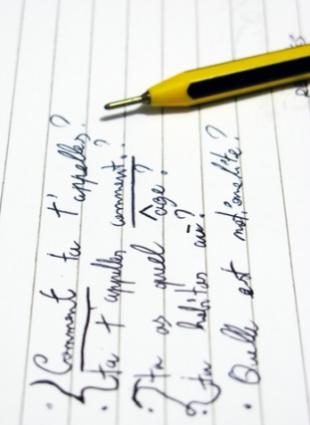 Comment tu t'appelles?
tu t'appelles comment?
Tu as quel âge?
tu habites où?
Quelle est not'onalité?